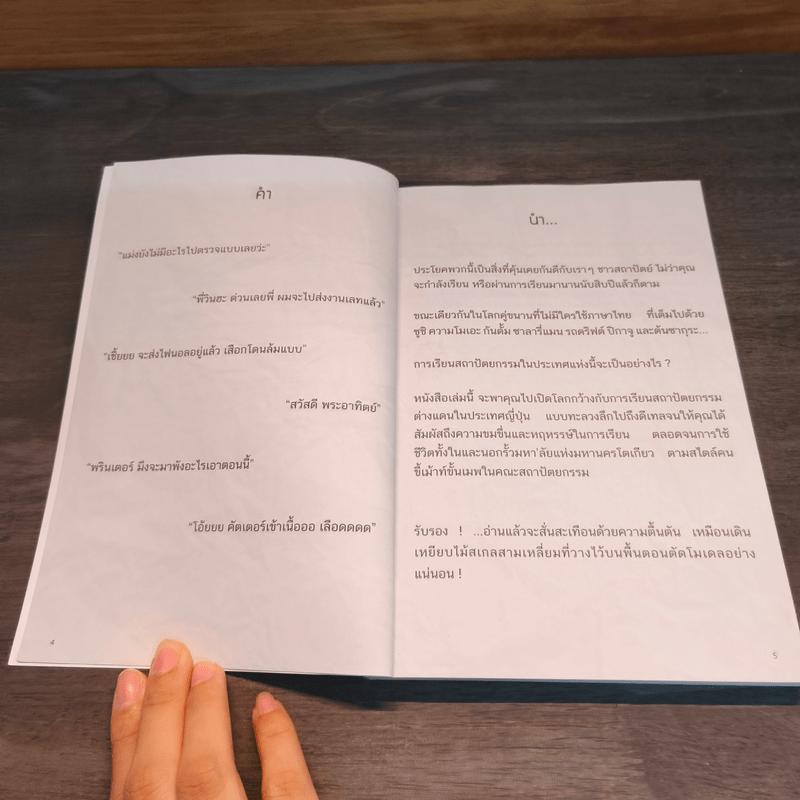 คำ
“แม่งยังไม่มีอะไรไปตรวจแบบเลยว่ะ”
“พี่วินฮะ ด่วนเลยพี่ ผมจะไปส่งงานเลทแล้ว”
“เชี้ยยย จะส่งไฟนอลอยู่แล้ว เสือกโดนล้มแบบ”
“สวัสดี พระอาทิตย์”
“พรินเตอร์ มึงจะมาพังอะไรเอาตอนนี้”
“โอ้ยยย คัตเตอร์เข้าเนื้อออ เลือดดดด”
4
นำ...
ประโยคพวกนี้เป็นสิ่งที่คุ้นเคยกันดีกับเราๆ ชาวสถาปัตย์ ไม่ว่าคุณ
จะกำลังเรียน หรือผ่านการเรียนมานานนับสิบปีแล้วก็ตาม
ขณะเดียวกันในโลกคู่ขนานที่ไม่มีใครใช้ภาษาไทย ที่เต็มไปด้วย
ซูชิ ความโมเอะ กันดั้ม ซาลารี่แมน รถดริฟต์ ปิกาจู และต้นซากุระ...
การเรียนสถาปัตยกรรมในประเทศแห่งนี้จะเป็นอย่างไร ?
หนังสือเล่มนี้ จะพาคุณไปเปิดโลกกว้างกับการเรียนสถาปัตยกรรม
ต่างแดนในประเทศญี่ปุ่น แบบทะลวงลึกไปถึงดีเทลจนให้คุณได้
สัมผัสถึงความขมขื่นและหฤหรรษ์ในการเรียน ตลอดจนการใช้
ชีวิตทั้งในและนอกรั้วมหา'ลัยแห่งมหานครโตเกียว ตามสไตล์คน
ขี้เม้าท์ขั้นเมพในคณะสถาปัตยกรรม
รับรอง ! ...อ่านแล้วจะสั่นสะเทือนด้วยความตื้นตัน เหมือนเดิน
เหยียบไม้สเกลสามเหลี่ยมที่วางไว้บนพื้นตอนตัดโมเดลอย่าง
แน่นอน !
5